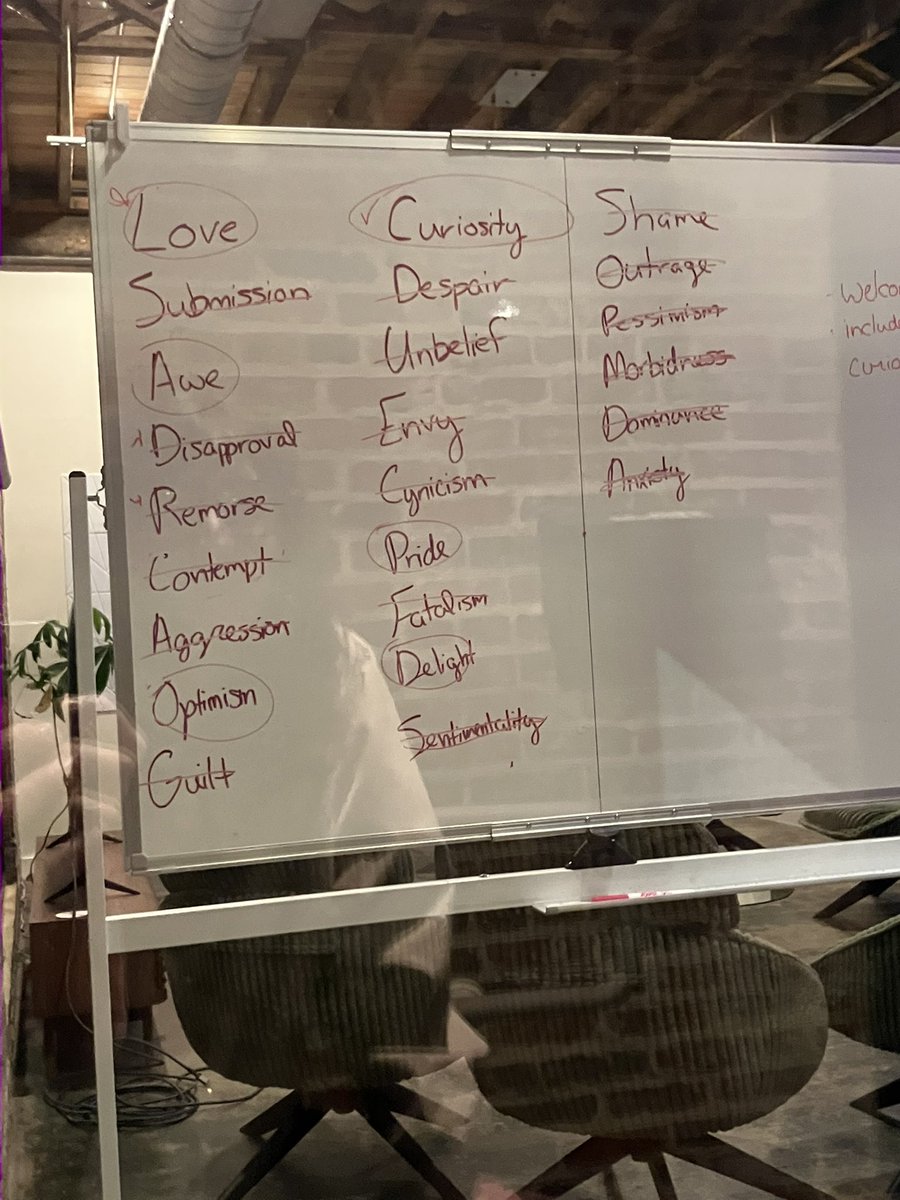 Love
Submission
Awe
Disapproval
Remorse
Contempt
Aggression
Optimism
Guilt
Curiosity
Despair
Unbelief
Envy
Cynicism
Pride
Fatalism
Delight
Sentimentality
Shame
Outrage
Pessimism
Morbidness
Dominance
Anxiety
- Welco
- include
Curio